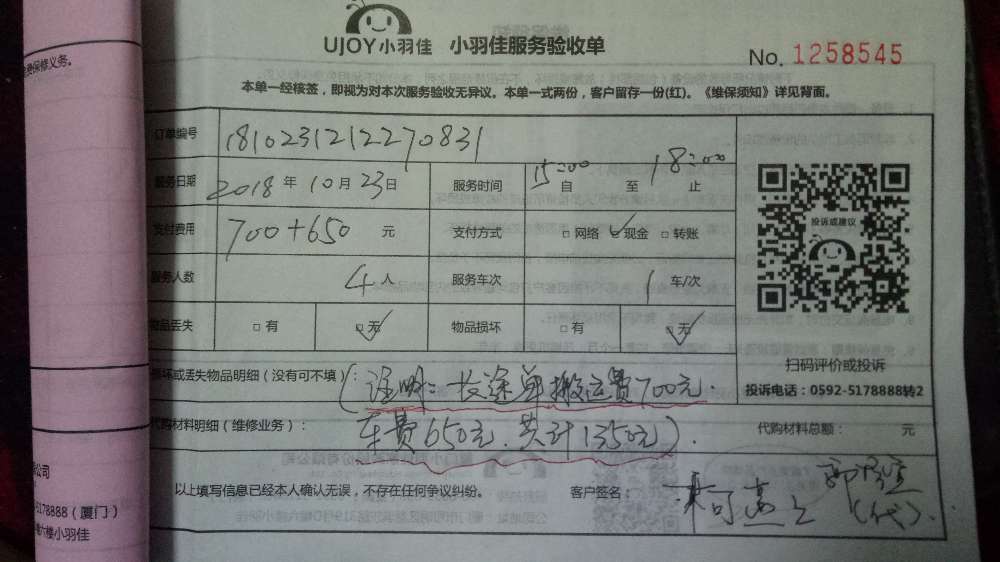 免费保修义务。
UJOY小羽佳 小羽佳服务验收单
No. 1258545
本单一经核签，即视为对本次服务验收无异议。本单一式两份，客户留存一份(红)。《维保须知》详见背面。
订单编号 1810231212270831
服务日期 2018 年 10 月 23 日 服务时间 15:00 自 至 18:00 止
支付费用 700+650 元 支付方式 □ 网络 ☑ 现金 □ 转账
投诉或建议
服务人数 4 人 服务车次 1 车/次
物品丢失 □ 有 ☑ 无 物品损坏 □ 有 ☑ 无
扫码评价或投诉
投诉电话：0592-5178888转2
损坏或丢失物品明细（没有可不填）： （说明：长途单搬运费700元.
代购材料明细（维修业务）： 车费650元、共计1350元）.
代购材料总额： 元
公司
5178888（厦门）
六楼小羽佳
以上填写信息已经本人确认无误，不存在任何争议纠纷。 客户签名：
（代）.